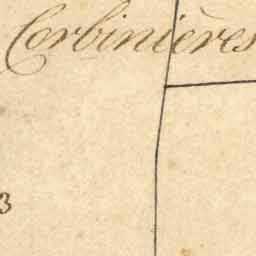 Corbinières
3